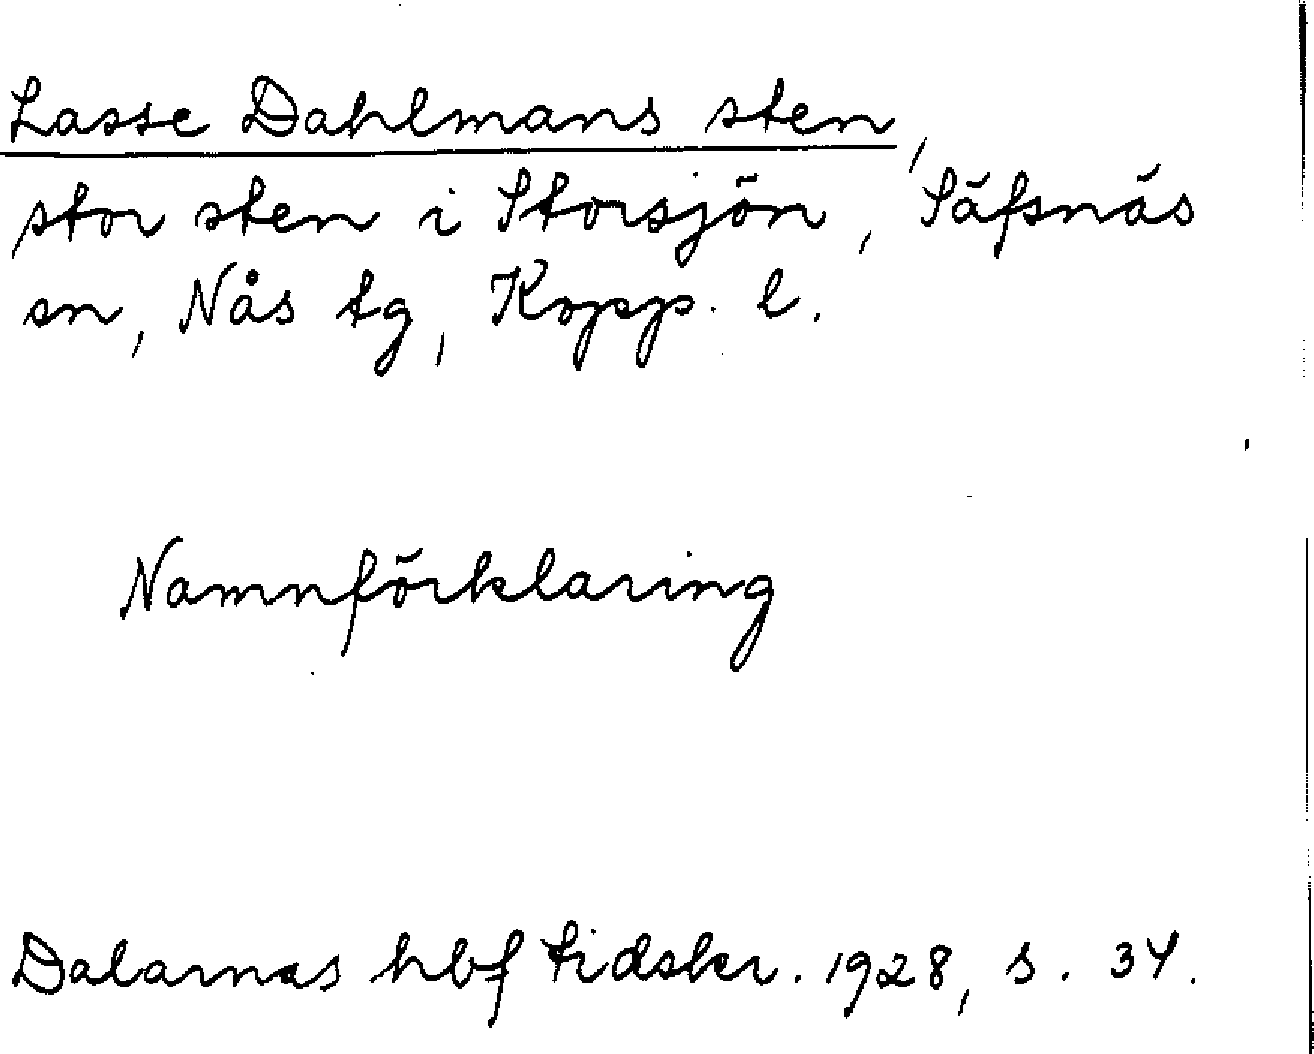 Lasse Dahlmans sten,
stor sten i Storsjön, Säfsnäs
sn, Nås tg, Kopp. l.
Namnförklaring
Dalarnas hbf tidskr. 1928, s. 34.